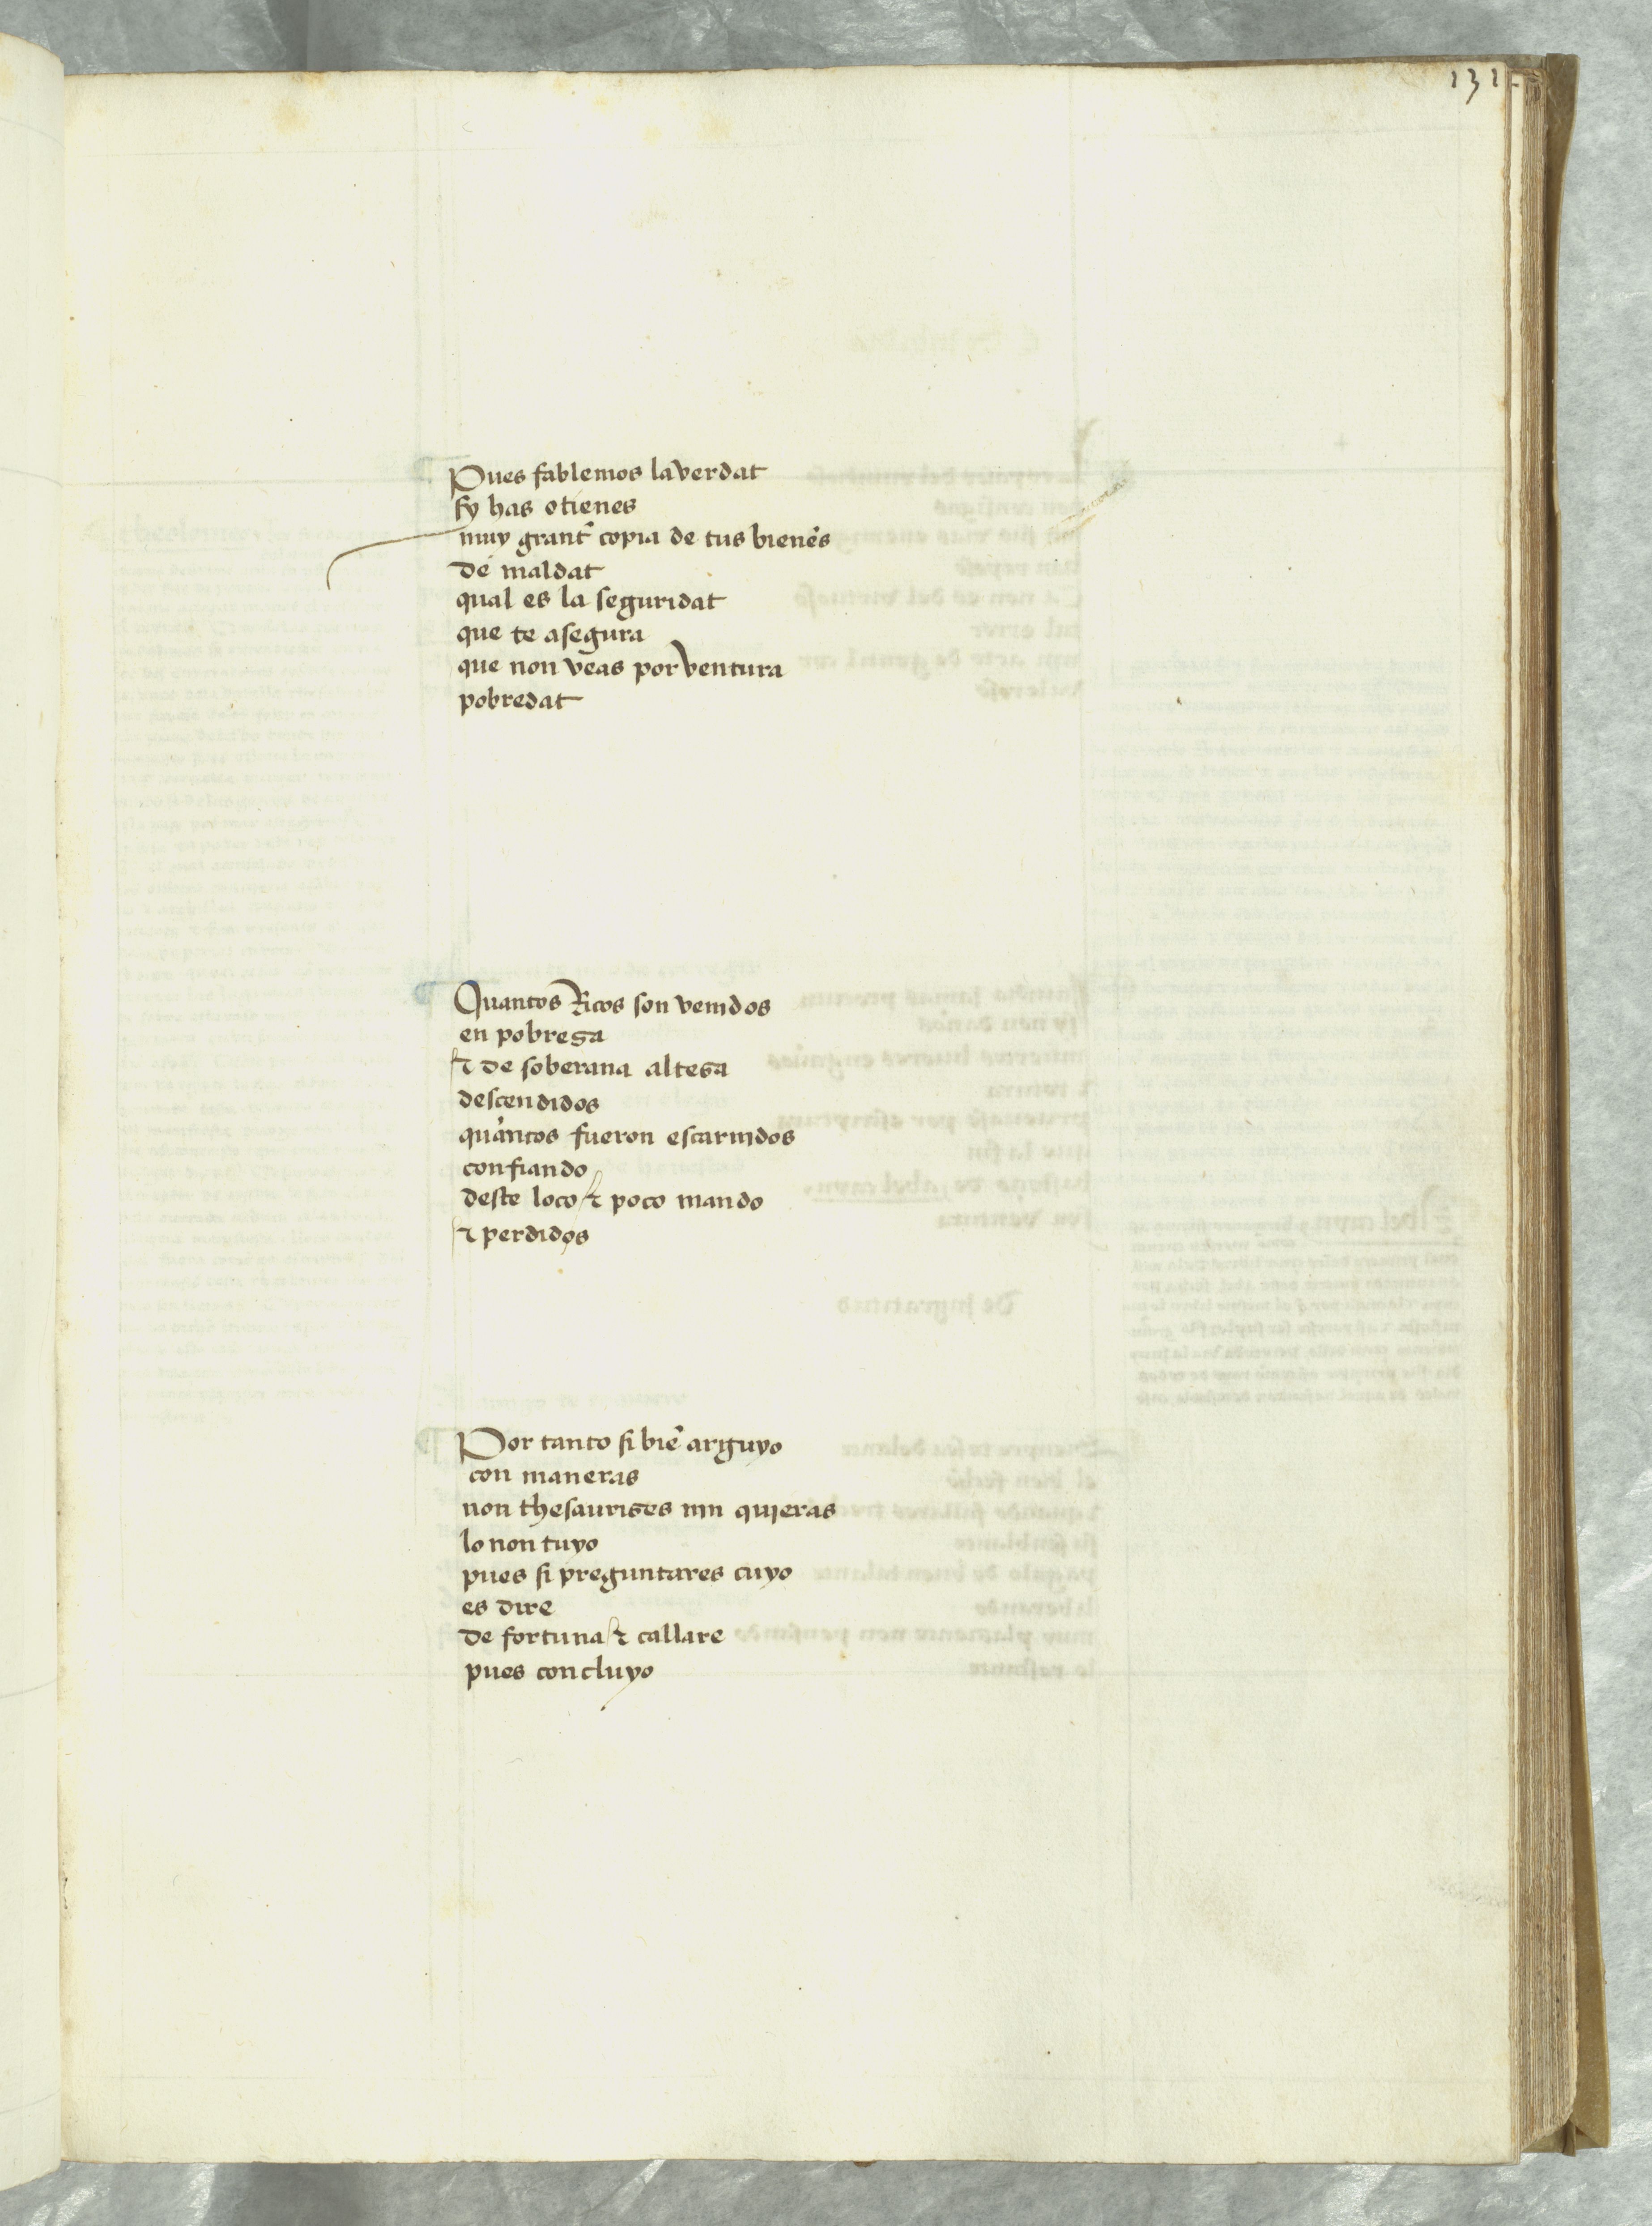 131
Pues fablemos la verdat
sy has o tienes
muy grant copia de tus bienes
de maldat
qual es la seguridat
que te asegura
que non veas por ventura
pobredat
Quantos Ricos son venidos
en pobresa
⁊ de soberana altesa
descendidos
quantos fueron escarnidos
confiando
deste loco ⁊ poco mando
⁊ perdidos
Por tanto si biē arguyo
con maneras
non thesaurises nin quieras
lo non tuyo
pues si preguntares cuyo
es dire
de fortuna ⁊ callare
pues concluyo